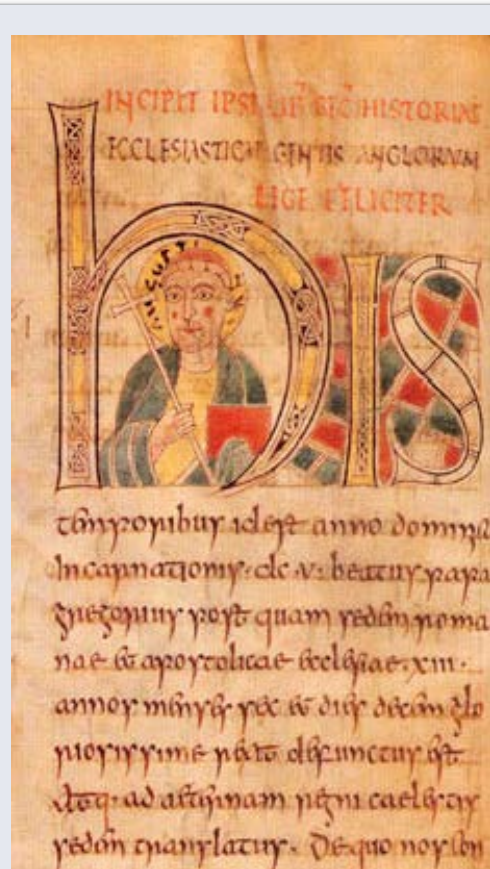 INCIPIT HISTORIAE
ECCLESIASTICAE GENTIS ANGLORUM
LEGE FELICITER
AUGUSTI
hIS
temporibus id est anno dominic
Incarnationis. dc. v. beatus papa
gregorius post quam sedem roma
nae et apostolicae ecclesiae. xiii.
annos menses sex et dies decem glo
riosissime rexit defunctus est
Atq. ad aeternam regni caelestis
sedem translatus. De quo nos con